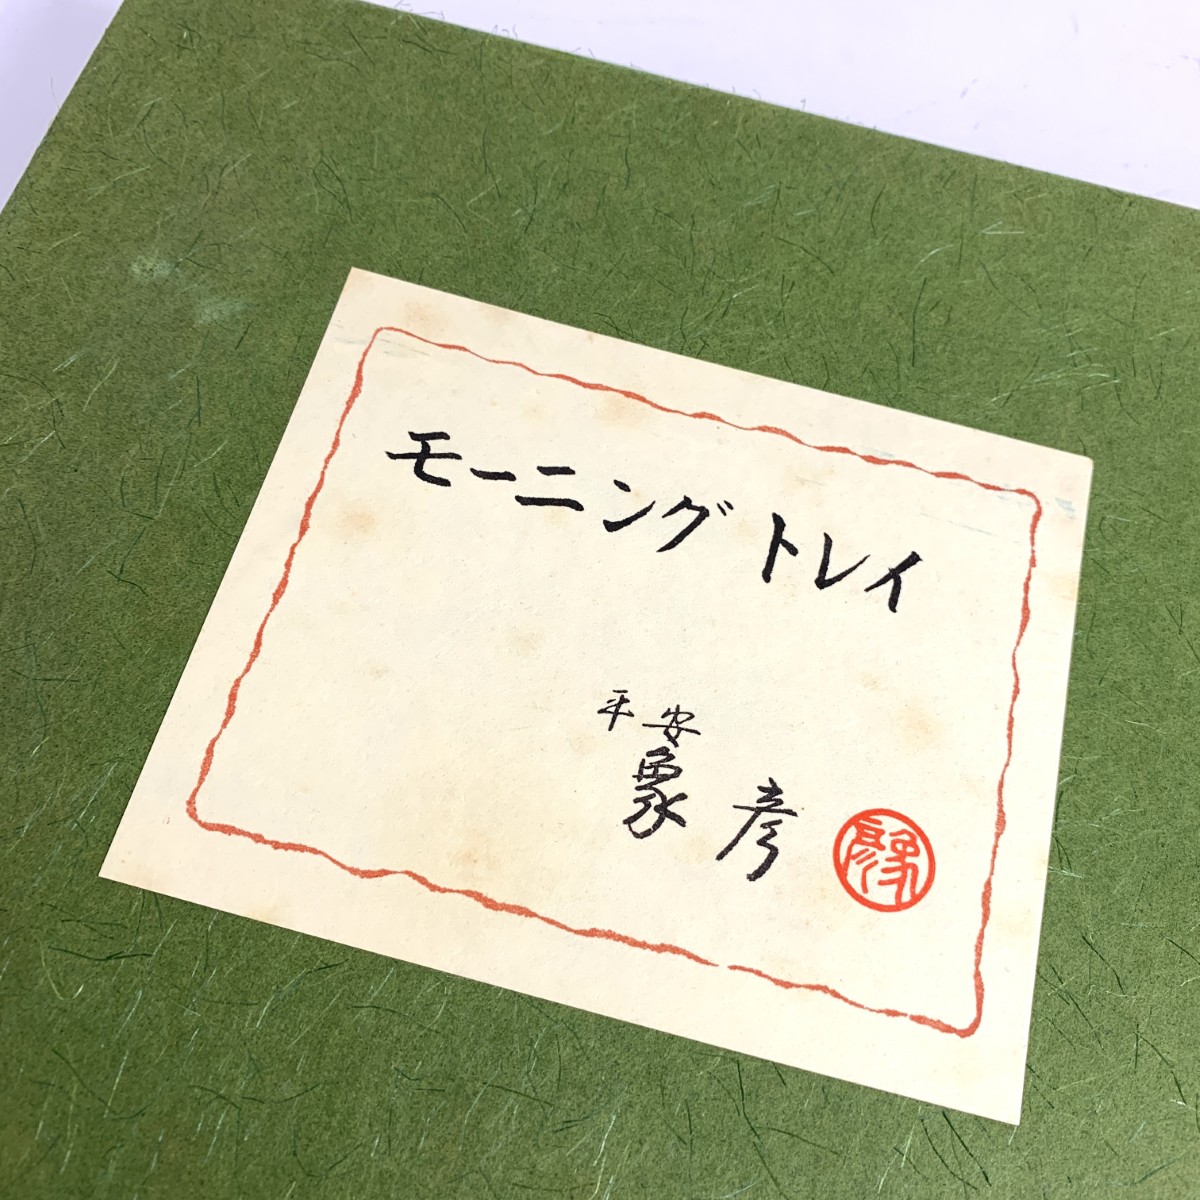 モーニング トレイ
平安
象彦
象彦